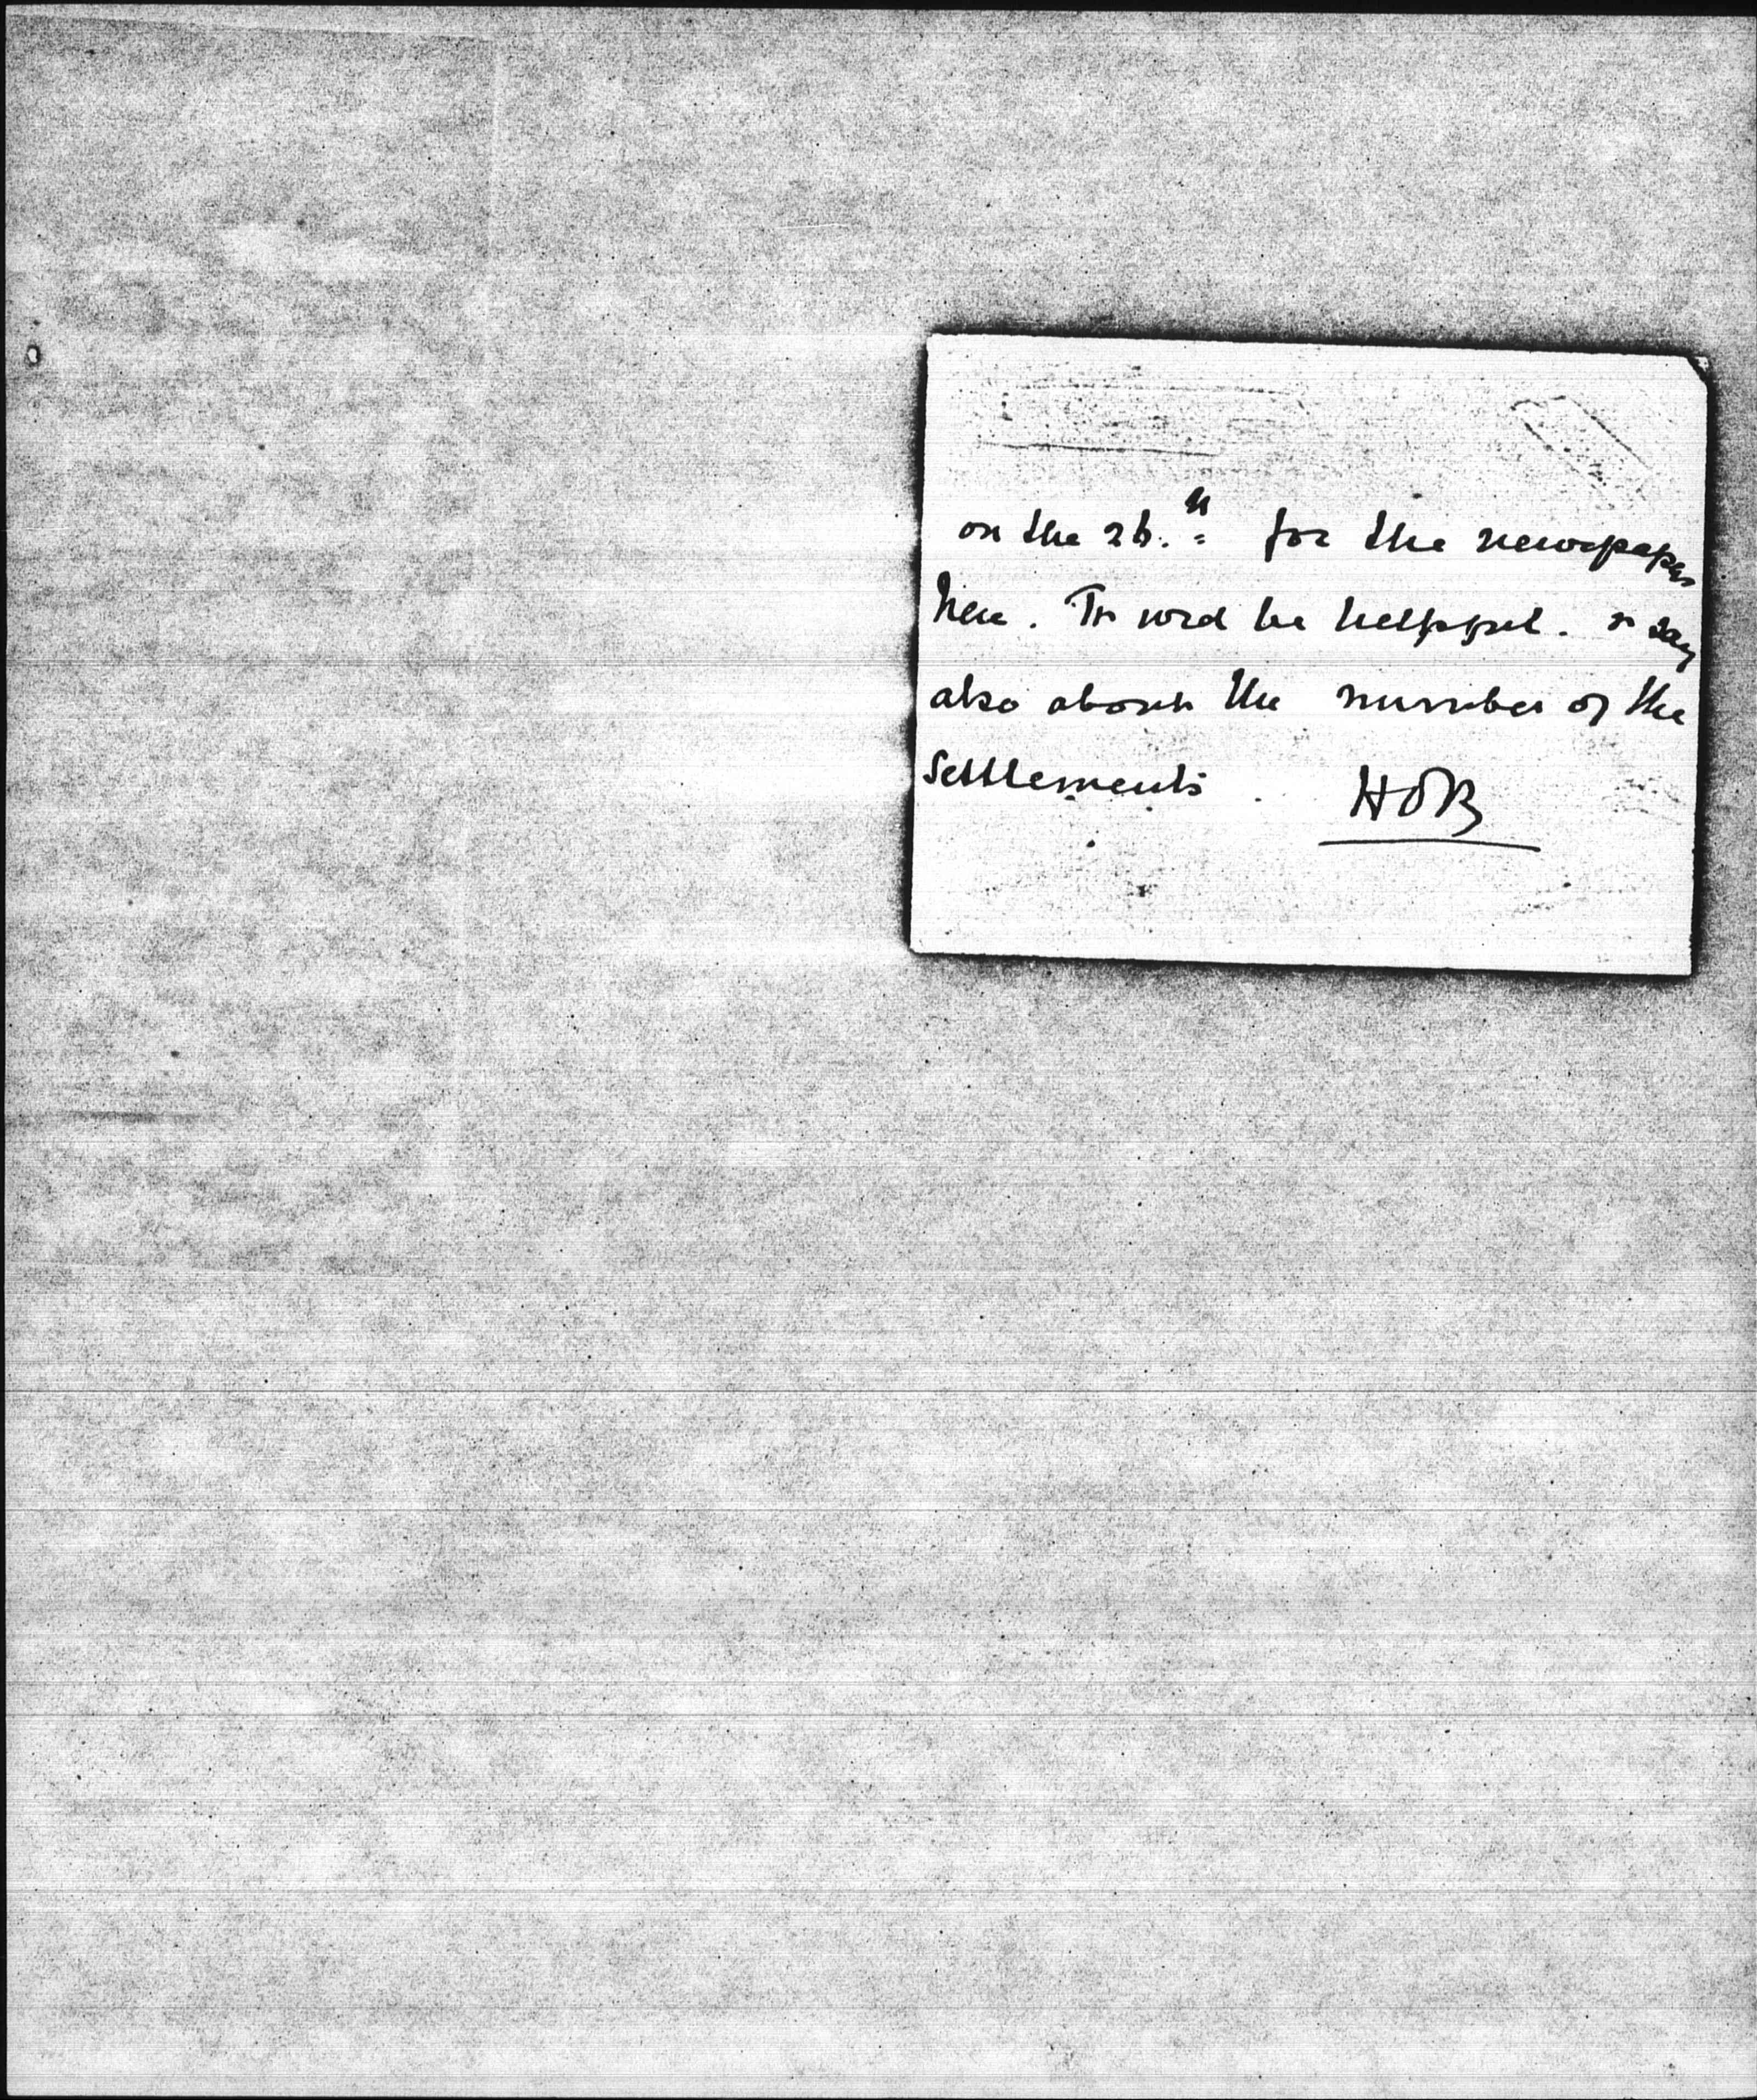 on the 26.th for the newspapers
here. It wod be helpful. to say
also about the number of the
Settlements. HOB